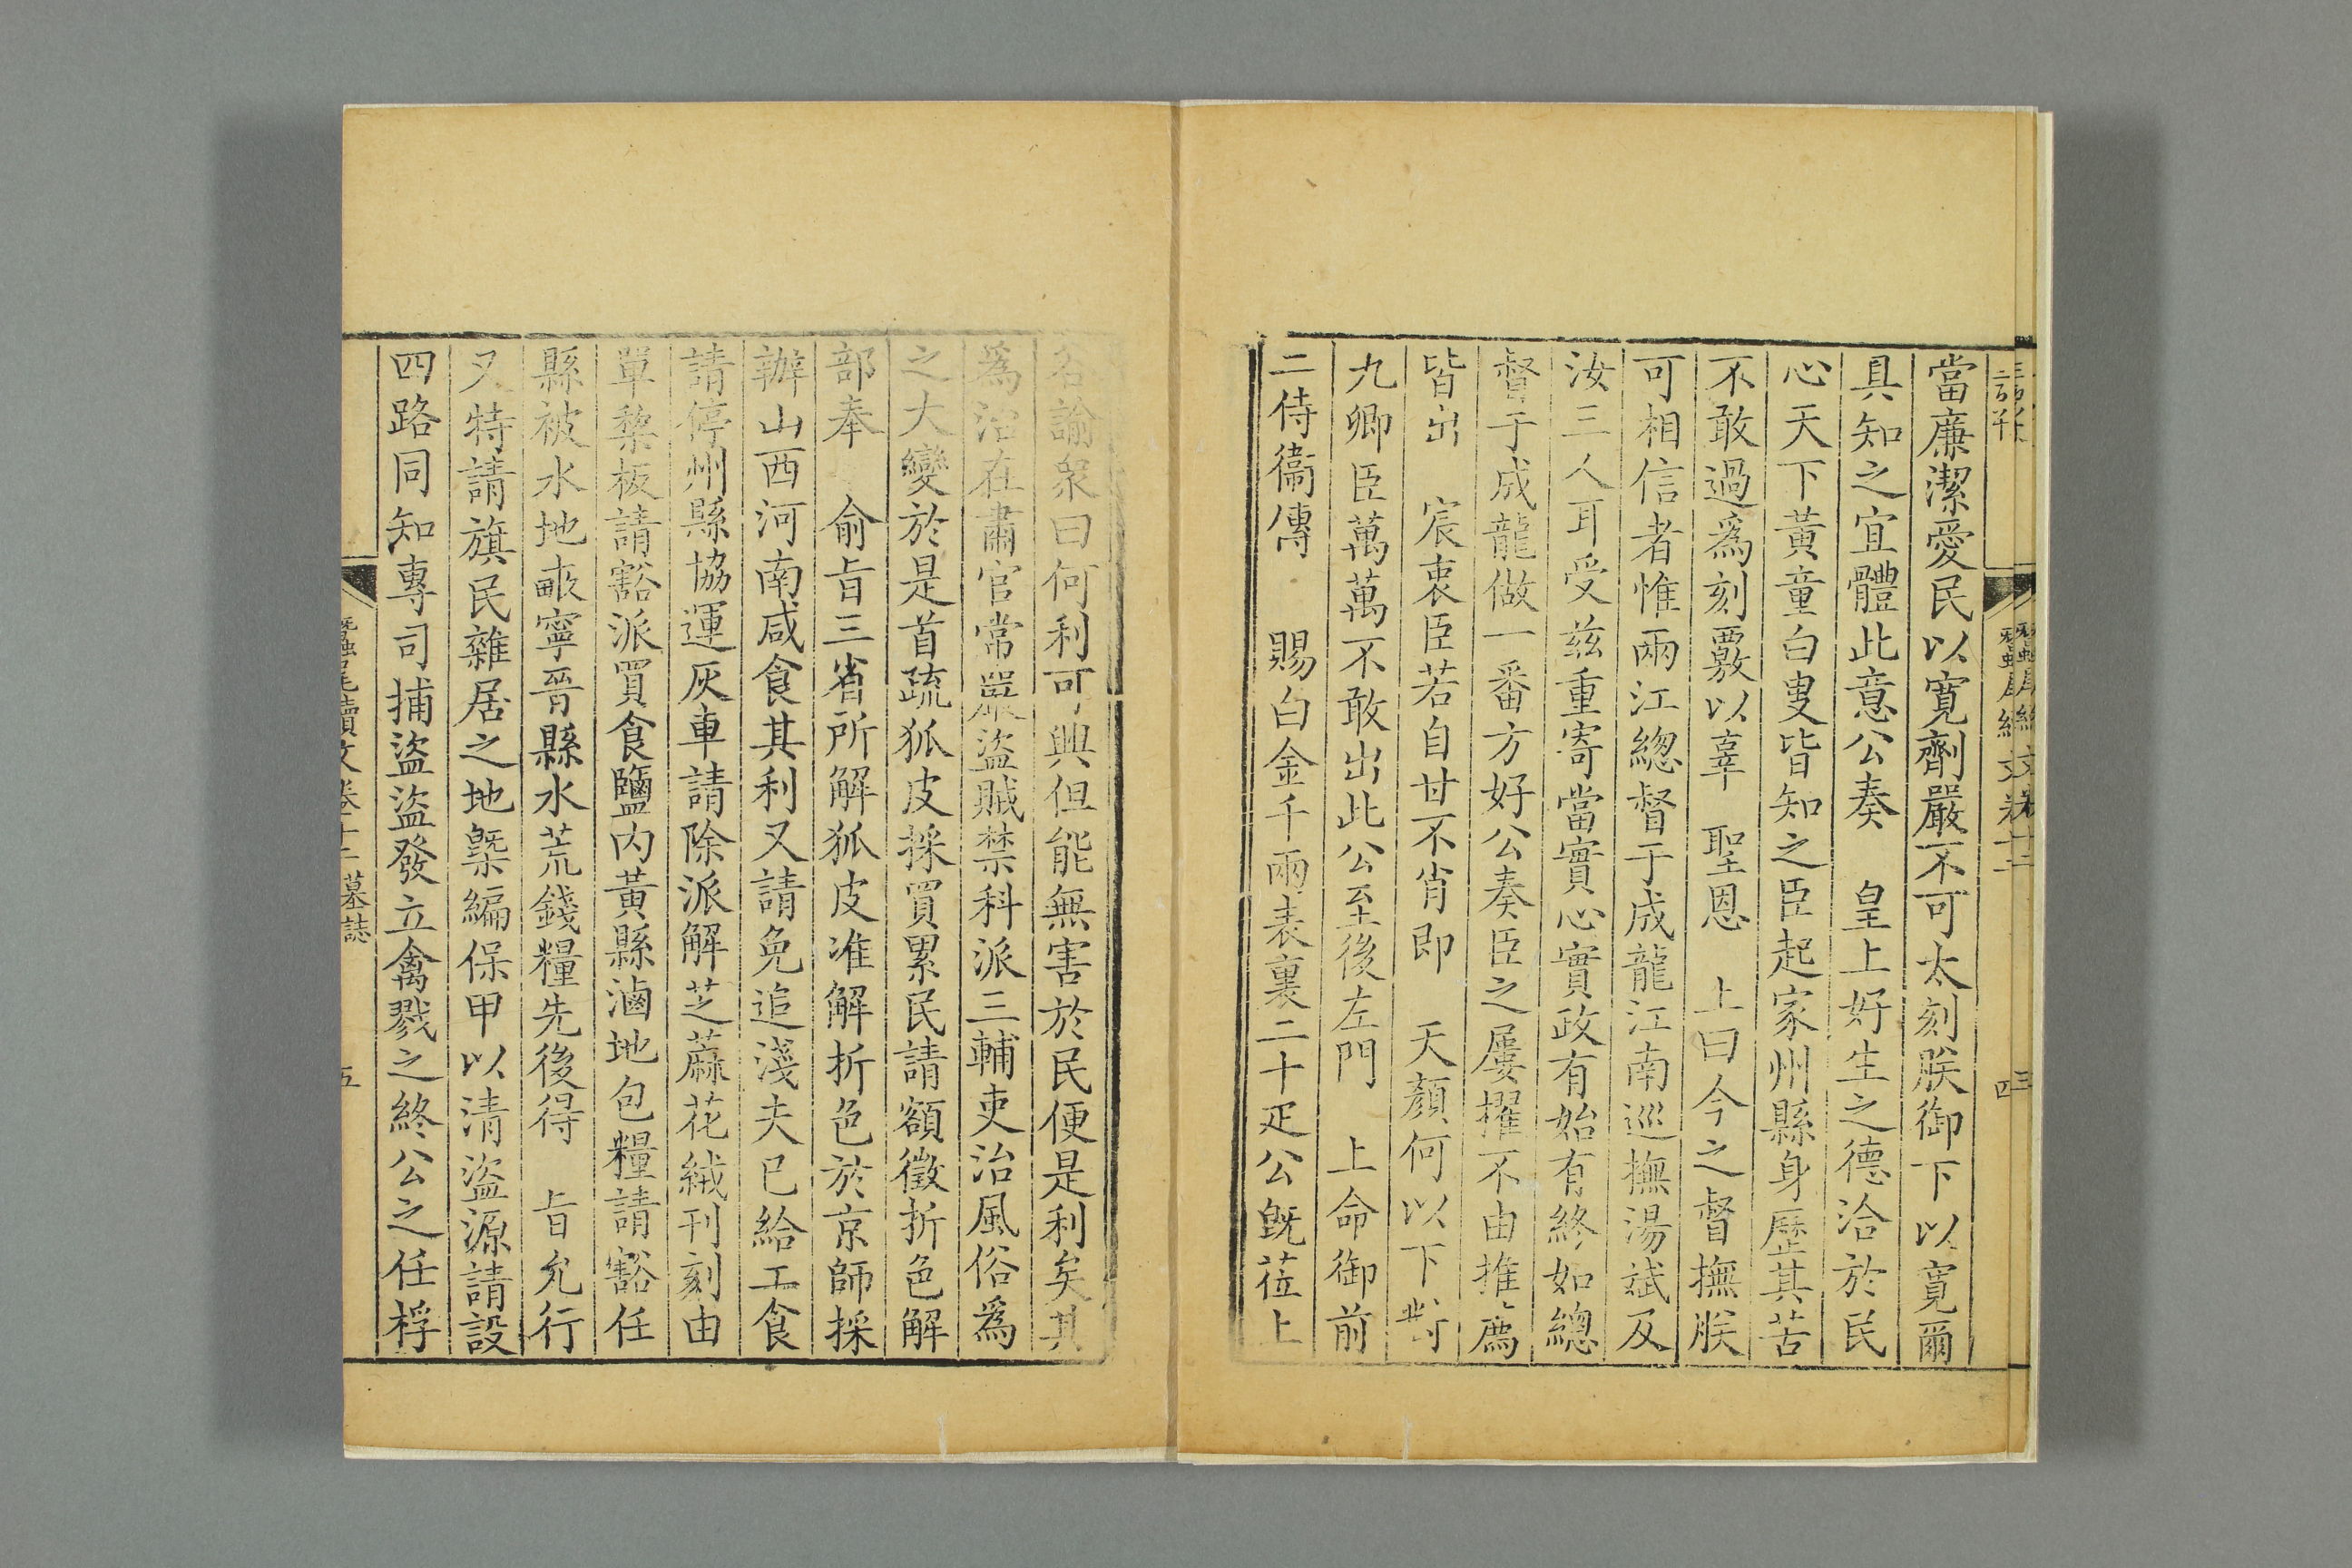 當廉潔愛民以寬劑嚴不可太刻朕御下以寬爾
具知之宜體此意公奏　皇上好生之德洽於民
心天下黃童白叟皆知之臣起家州縣身歷其苦
不敢過爲刻覈以辜　聖恩　上曰今之督撫朕
可相信者惟兩江總督于成龍江南巡撫湯斌及
汝三人耳受兹重寄當實心實政有始有終如總
督于成龍做一番方好公奏臣之屢擢不由推薦
皆出　宸衷臣若自甘不肖即　天顏何以下對
九卿臣萬萬不敢出此公至後左門　上命御前
二侍衞傳　賜白金千兩表裏二十疋公旣莅上
名諭衆曰何利可興但能無害於民便是利矣其
爲治在肅官常嚴盜賊禁科派三輔吏治風俗爲
之大變於是首疏狐皮採買累民請額徵折色解
部奉　俞旨三省所解狐皮准解折色於京師採
辦山西河南咸食其利又請免追淺夫已給工食
請停州縣協運灰車請除派解芝蔴花絨刊刻由
單棃板請豁派買食鹽内黃縣滷地包糧請豁任
縣被水地畝寧晉縣水荒錢糧先後得　旨允行
又特請旗民雜居之地槩編保甲以清盜源請設
四路同知專司捕盜盜發立禽戮之終公之任桴
蠶尾續文卷十二　墓誌　五